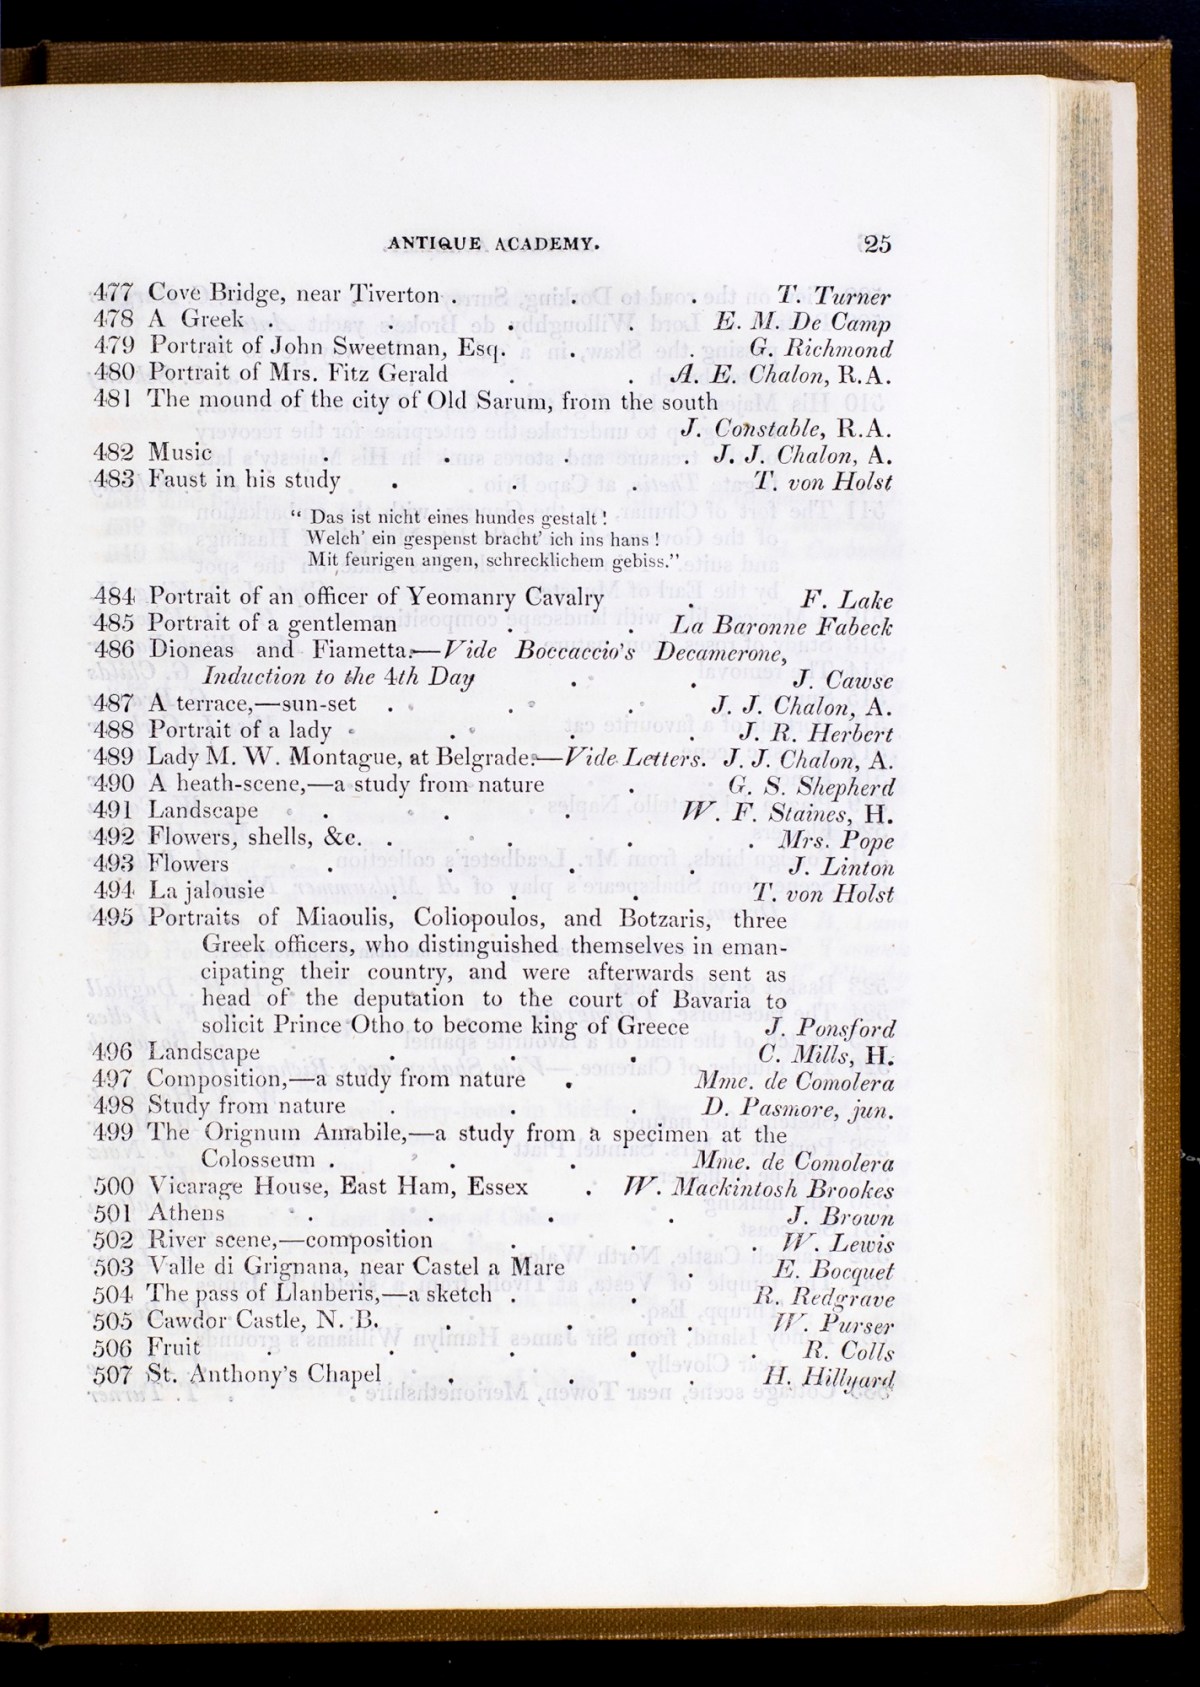 ANTIQUE ACADEMY. 25
477 Cove Bridge, near Tiverton . . . T. Turner
478 A Greek . . . . E. M. De Camp
479 Portrait of John Sweetman, Esq. . . G. Richmond
480 Portrait of Mrs. Fitz Gerald . . A. E. Chalon, R.A.
481 The mound of the city of Old Sarum, from the south
J. Constable, R.A.
482 Music . . . . J. J. Chalon, A.
483 Faust in his study . . . T. von Holst
“ Das ist nicht eines hundes gestalt !
Welch’ ein gespenst bracht’ ich ins hans !
Mit feurigen augen, schrecklichem gebiss.”
484 Portrait of an officer of Yeomanry Cavalry . F. Lake
485 Portrait of a gentleman . . La Baronne Fabeck
486 Dioneas and Fiametta:—Vide Boccaccio’s Decamerone,
Induction to the 4th Day . . J. Cawse
487 A terrace,—sun-set . . . J. J. Chalon, A.
488 Portrait of a lady . . . J. R. Herbert
489 Lady M. W. Montague, at Belgrade:—Vide Letters. J. J. Chalon, A.
490 A heath-scene,—a study from nature . G. S. Shepherd
491 Landscape . . . W. F. Staines, H.
492 Flowers, shells, &c. . . . . Mrs. Pope
493 Flowers . . . . J. Linton
494 La jalousie . . . T. von Holst
495 Portraits of Miaoulis, Coliopoulos, and Botzaris, three
Greek officers, who distinguished themselves in eman-
cipating their country, and were afterwards sent as
head of the deputation to the court of Bavaria to
solicit Prince Otho to become king of Greece J. Ponsford
496 Landscape . . . C. Mills, H.
497 Composition,—a study from nature . Mme. de Comolera
498 Study from nature . . . D. Pasmore, jun.
499 The Orignum Amabile,—a study from a specimen at the
Colosseum . . . Mme. de Comolera
500 Vicarage House, East Ham, Essex . W. Mackintosh Brookes
501 Athens . . . . J. Brown
502 River scene,—composition . . . W. Lewis
503 Valle di Grignana, near Castel a Mare . E. Bocquet
504 The pass of Llanberis,—a sketch . . R. Redgrave
505 Cawdor Castle, N. B. . . . W. Purser
506 Fruit . . . . . R. Colls
507 St. Anthony’s Chapel . . . H. Hillyard